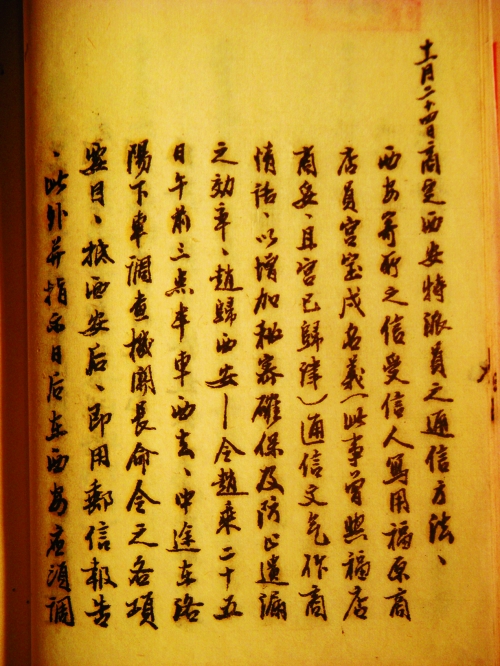 十一月二十四日商定西安特派員之通信方法、
西安寄所之信受信人寫用福原商
店員宮室戍名義(此事曾與福店
商妥、且宮已歸津)通信文気作商
情話、以增加秘密確保及防止遺漏
之効率、趙歸西安—令趙乘二十五
日午前三点半車西去、中途在洛
陽下車調查機關長命令之各項
要目、抵西安后、即用郵信報告
、此外并指示日后在西安应須調